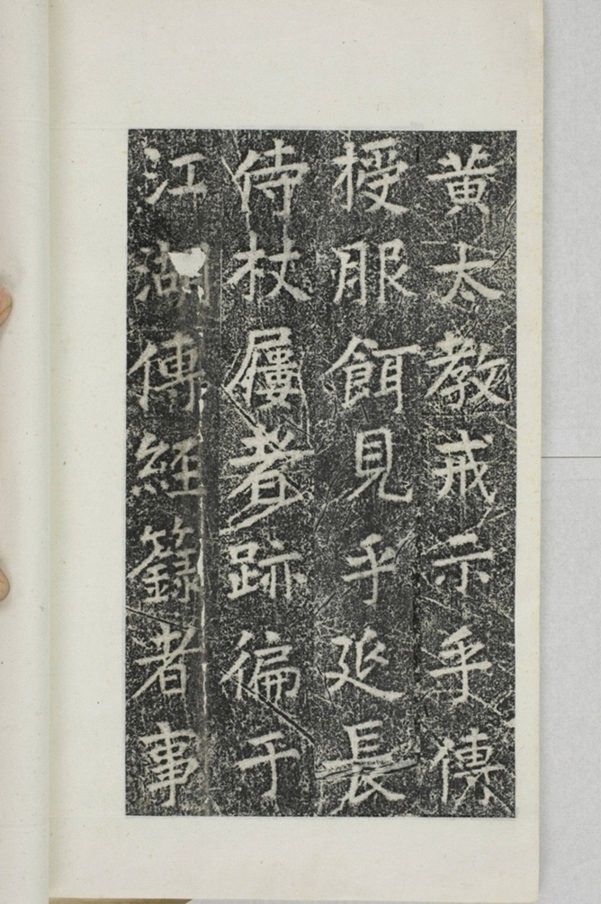 黄太教戒示乎傳
授服餌見乎延長
侍杖屨者跡徧于
江湖傳經籙者事